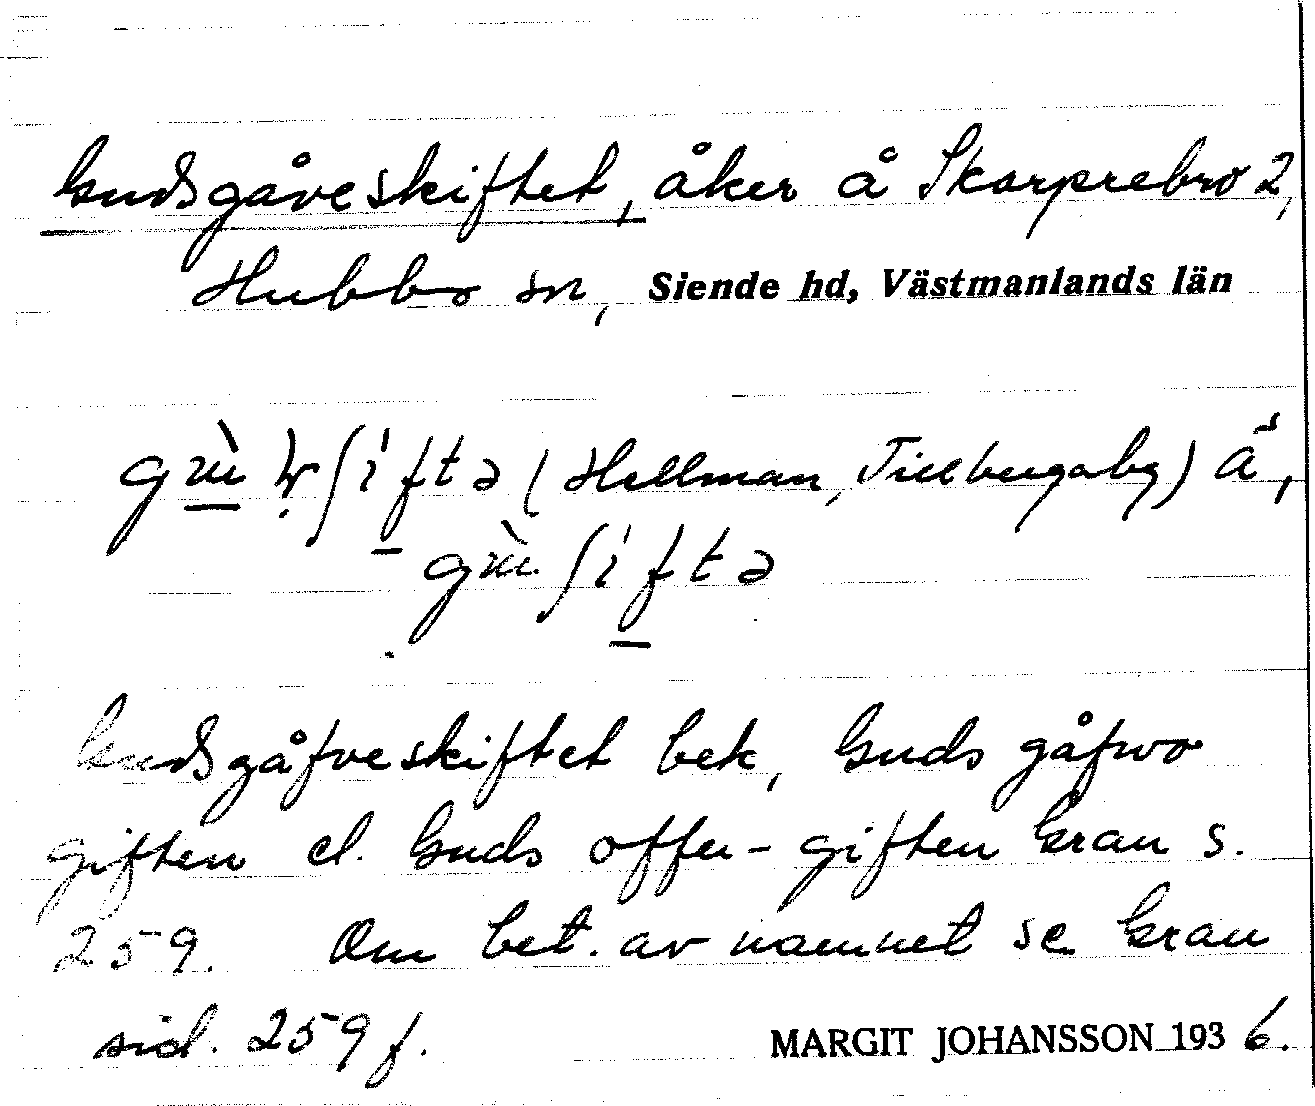 Gudsgåveskiftet, åker å Skarprebro 2,
Hubbo sn, Siende hd, Västmanlands län
(Hellman, Tillbergaby)
Gudsgåfveskiftet bek, Guds gåfwo
giften el. Guds offer-giften Grau s.
259. Om bet. av namnet se Grau
sid. 259 f.
MARGIT JOHANSSON 1936.